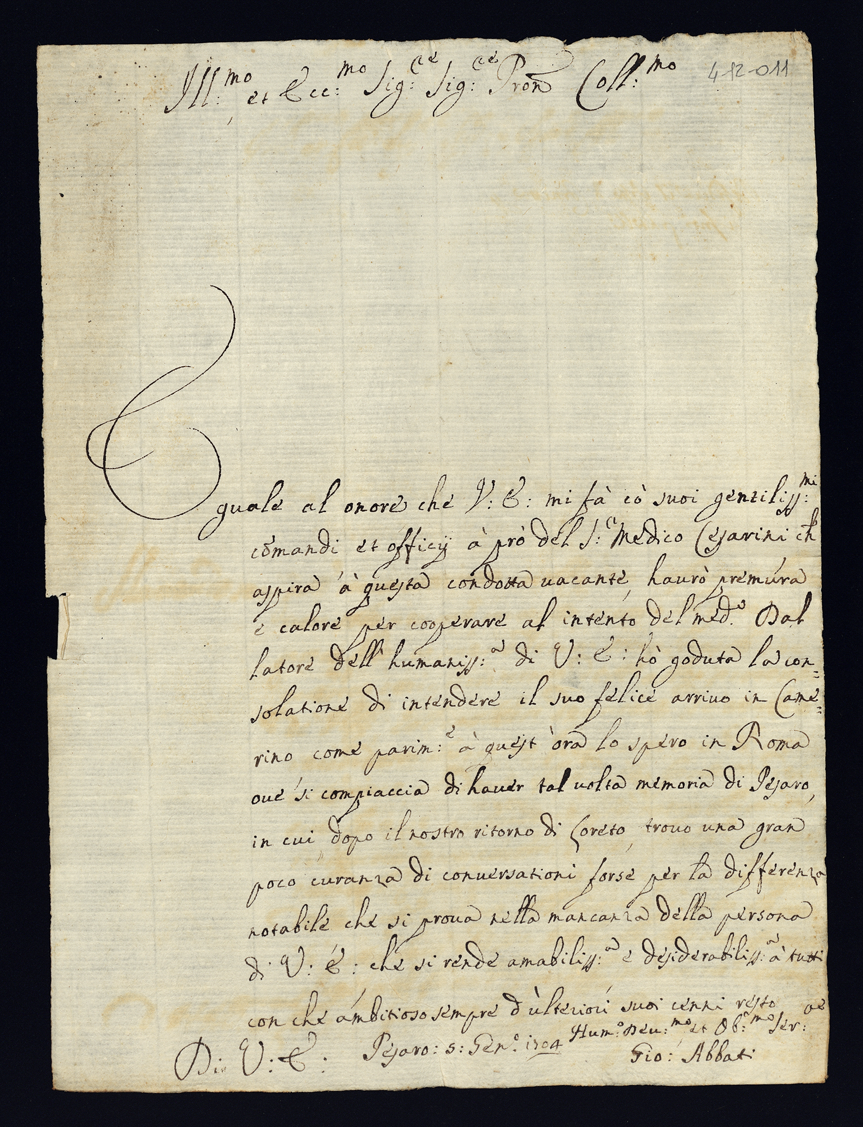 Ill:mo et Ecc:mo Sig:re Sig:re Pron Coll:mo 4-12-011
Eguale al onore che V: E: mi fà cò suoi gentiliss:mi
comandi et officij à prò del S:r Medico Cesarini ch
aspira à questa condotta vacante, haurò premura
e calore per cooperare al intento del med:o Dal
latore dell humaniss:a di V: E: hò goduta la con=
solatione di intendere il suo felice arrivo in Came=
rino come parim:e à quest'ora lo spero in Roma
oue si compiaccia di hauer tal uolta memoria di Pesaro,
in cui dopo il nostro ritorno di Loreto, trouo una gran
poco curanza di conuersationi forse per la differenza
notabile che si proua nella mancanza della persona
di V: E: che si rende amabiliss:a e desiderabiliss:a à tutti
con che ambitioso sempre d'ulteriori suoi cenni resto
Di V: E: Pesaro: 5: Gen:o 1704 Hum:o Deu:mo et Ob:mo Ser:re
Gio: Abbati